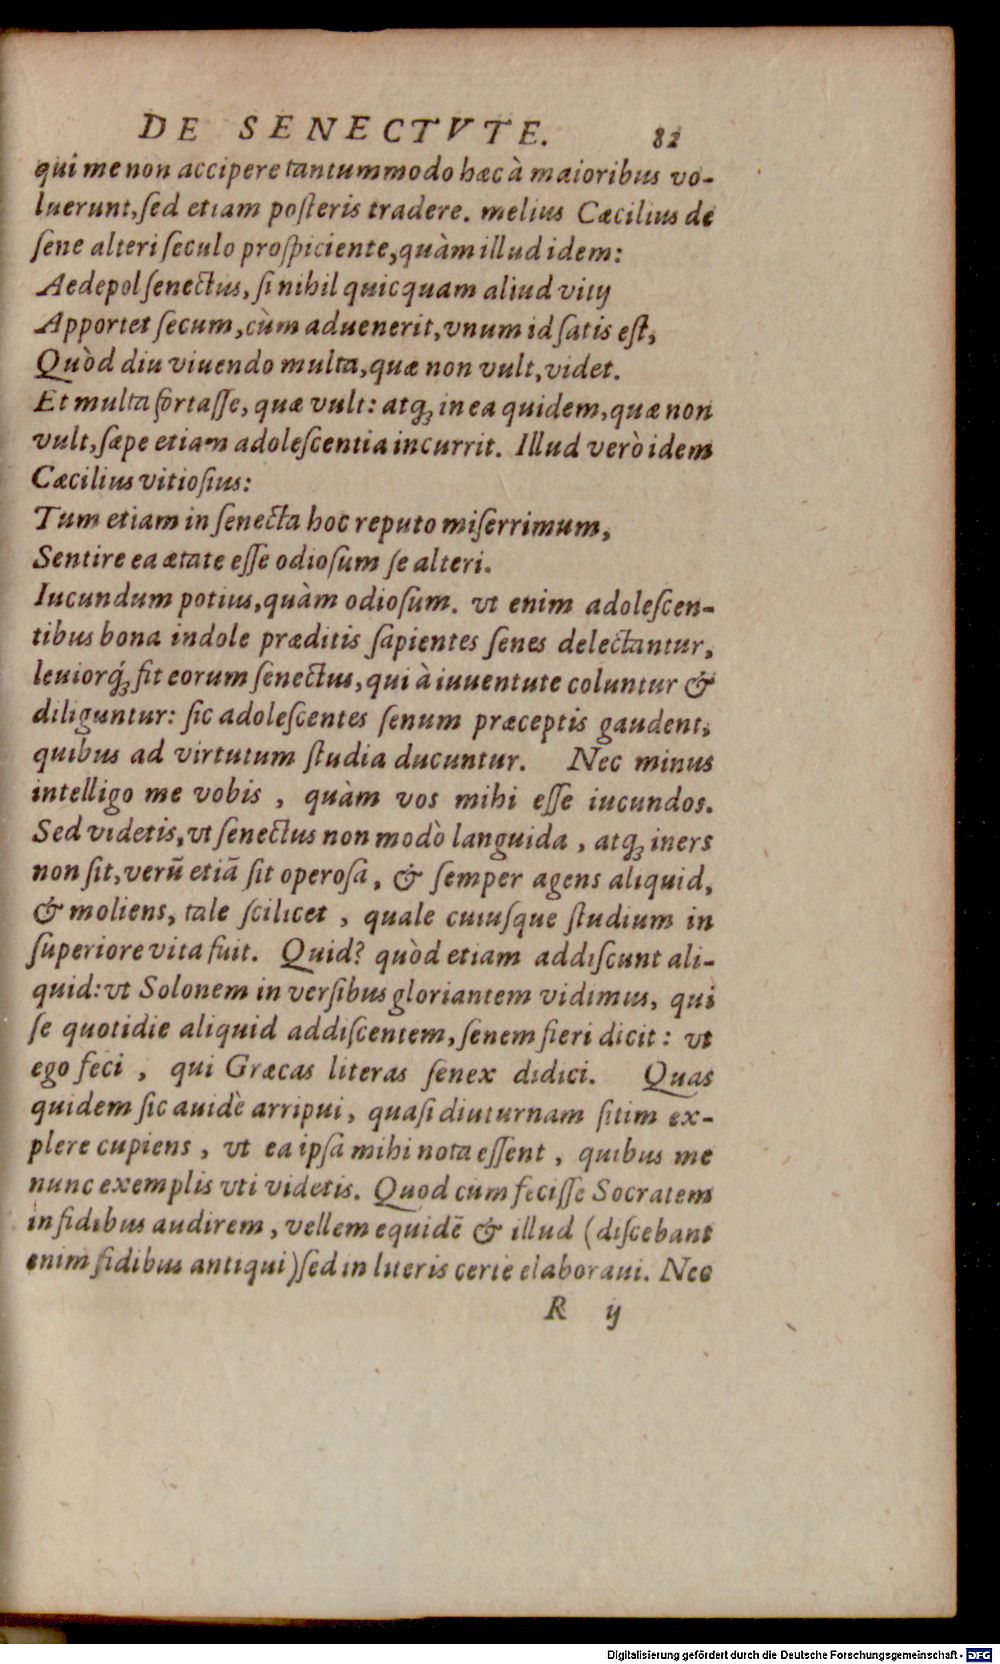 DE SENECTVTE. 82
qui me non accipere tantummodo hæc à maioribus vo-
luerunt, ſed etiam poſteris tradere. melius Cæcilius de
ſene alteri ſeculo proſpiciente, quàm illud idem:
Aedepol ſenectus, ſi nihil quicquam aliud vitij
Apportet ſecum, cùm aduenerit, vnum id ſatis eſt,
Quòd diu viuendo multa, quæ non vult, videt.
Et multa fortaſſe, quæ vult: atq; in ea quidem, quæ non
vult, ſæpe etiam adoleſcentia incurrit. Illud verò idem
Cæcilius vitioſius:
Tum etiam in ſenecta hoc reputo miſerrimum,
Sentire ea ætate eſſe odioſum ſe alteri.
Iucundum potius, quàm odioſum. vt enim adoleſcen-
tibus bona indole præditis ſapientes ſenes delectantur,
leuiorq́; fit eorum ſenectus, qui à iuuentute coluntur &
diliguntur: ſic adoleſcentes ſenum præceptis gaudent,
quibus ad virtutum ſtudia ducuntur. Nec minus
intelligo me vobis, quàm vos mihi eſſe iucundos.
Sed videtis, vt ſenectus non modò languida, atq; iners
non ſit, verũ etiã ſit operoſa, & ſemper agens aliquid,
& moliens, tale ſcilicet, quale cuiuſque ſtudium in
ſuperiore vita fuit. Quid? quòd etiam addiſcunt ali-
quid: vt Solonem in verſibus gloriantem vidimus, qui
ſe quotidie aliquid addiſcentem, ſenem fieri dicit: vt
ego feci, qui Græcas literas ſenex didici. Quas
quidem ſic auidè arripui, quaſi diuturnam ſitim ex-
plere cupiens, vt ea ipſa mihi nota eſſent, quibus me
nunc exemplis vti videtis. Quod cum feciſſe Socratem
in fidibus audirem, vellem equidẽ & illud (diſcebant
enim fidibus antiqui) ſed in literis certè elaboraui. Nec
R ij
Digitalisierung gefördert durch die Deutsche Forschungsgemeinschaft - DFG